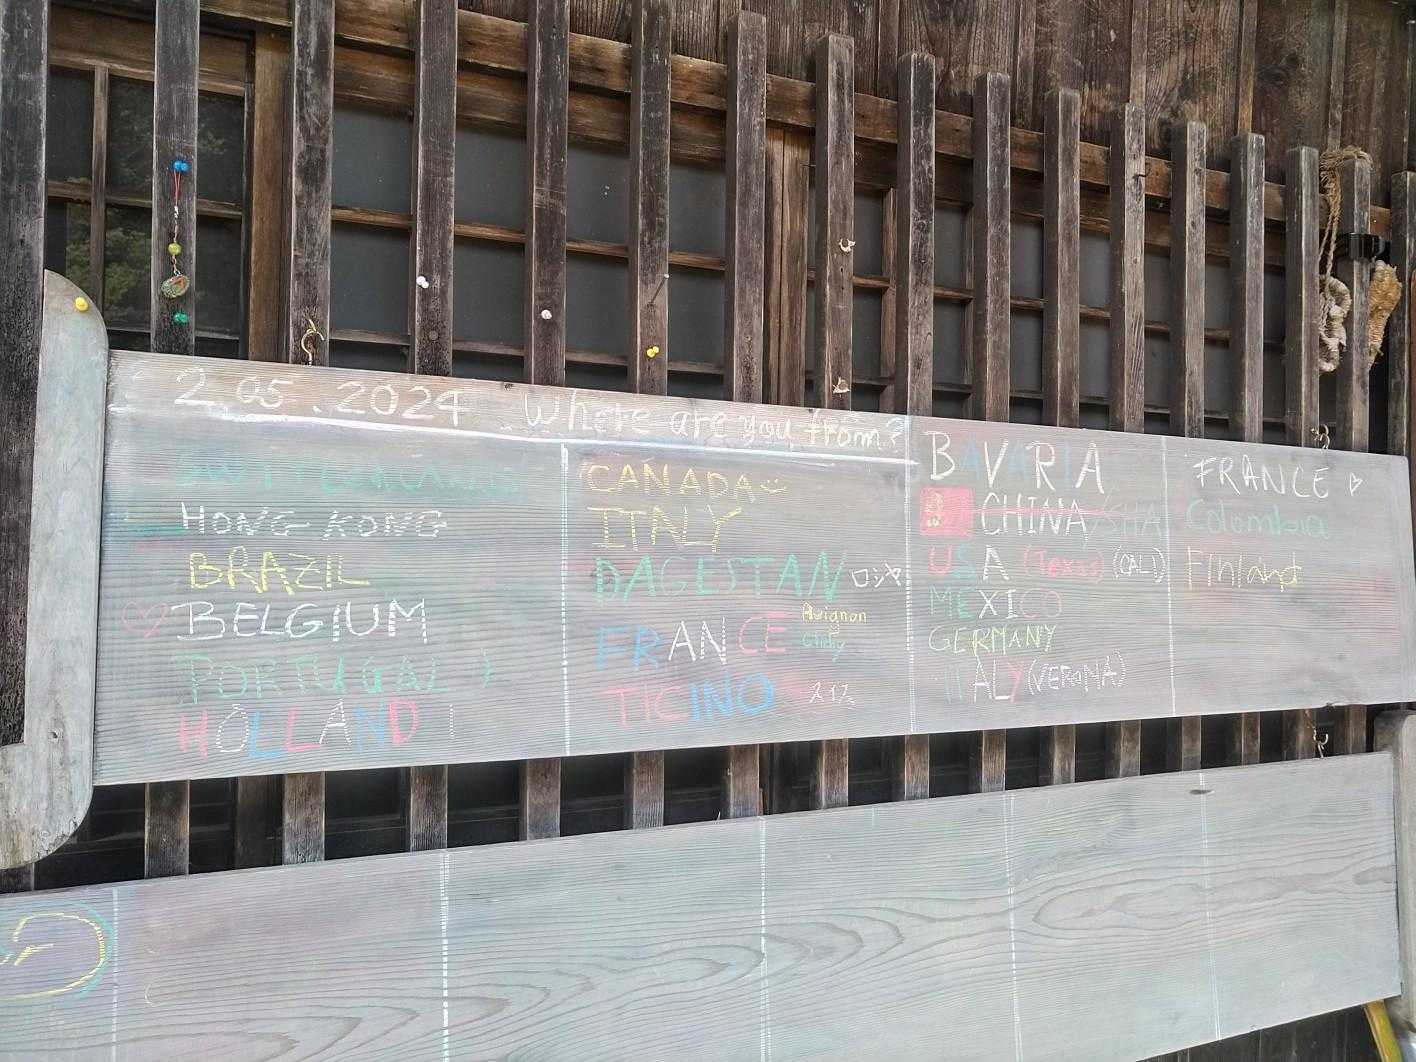 2.05.2024 Where are you from?
SWITZERLAND
HONG KONG
BRAZIL
BELGIUM
PORTUGAL
HOLLAND !
CANADA
ITALY
DAGESTAN ロシヤ
FRANCE Avignon
Clichy
TICINO スイス
BAVARIA
CHINA/SHA
USA (Texas) (CALI)
MEXICO
GERMANY
ITALY (VERONA)
FRANCE
Colombia
Finland